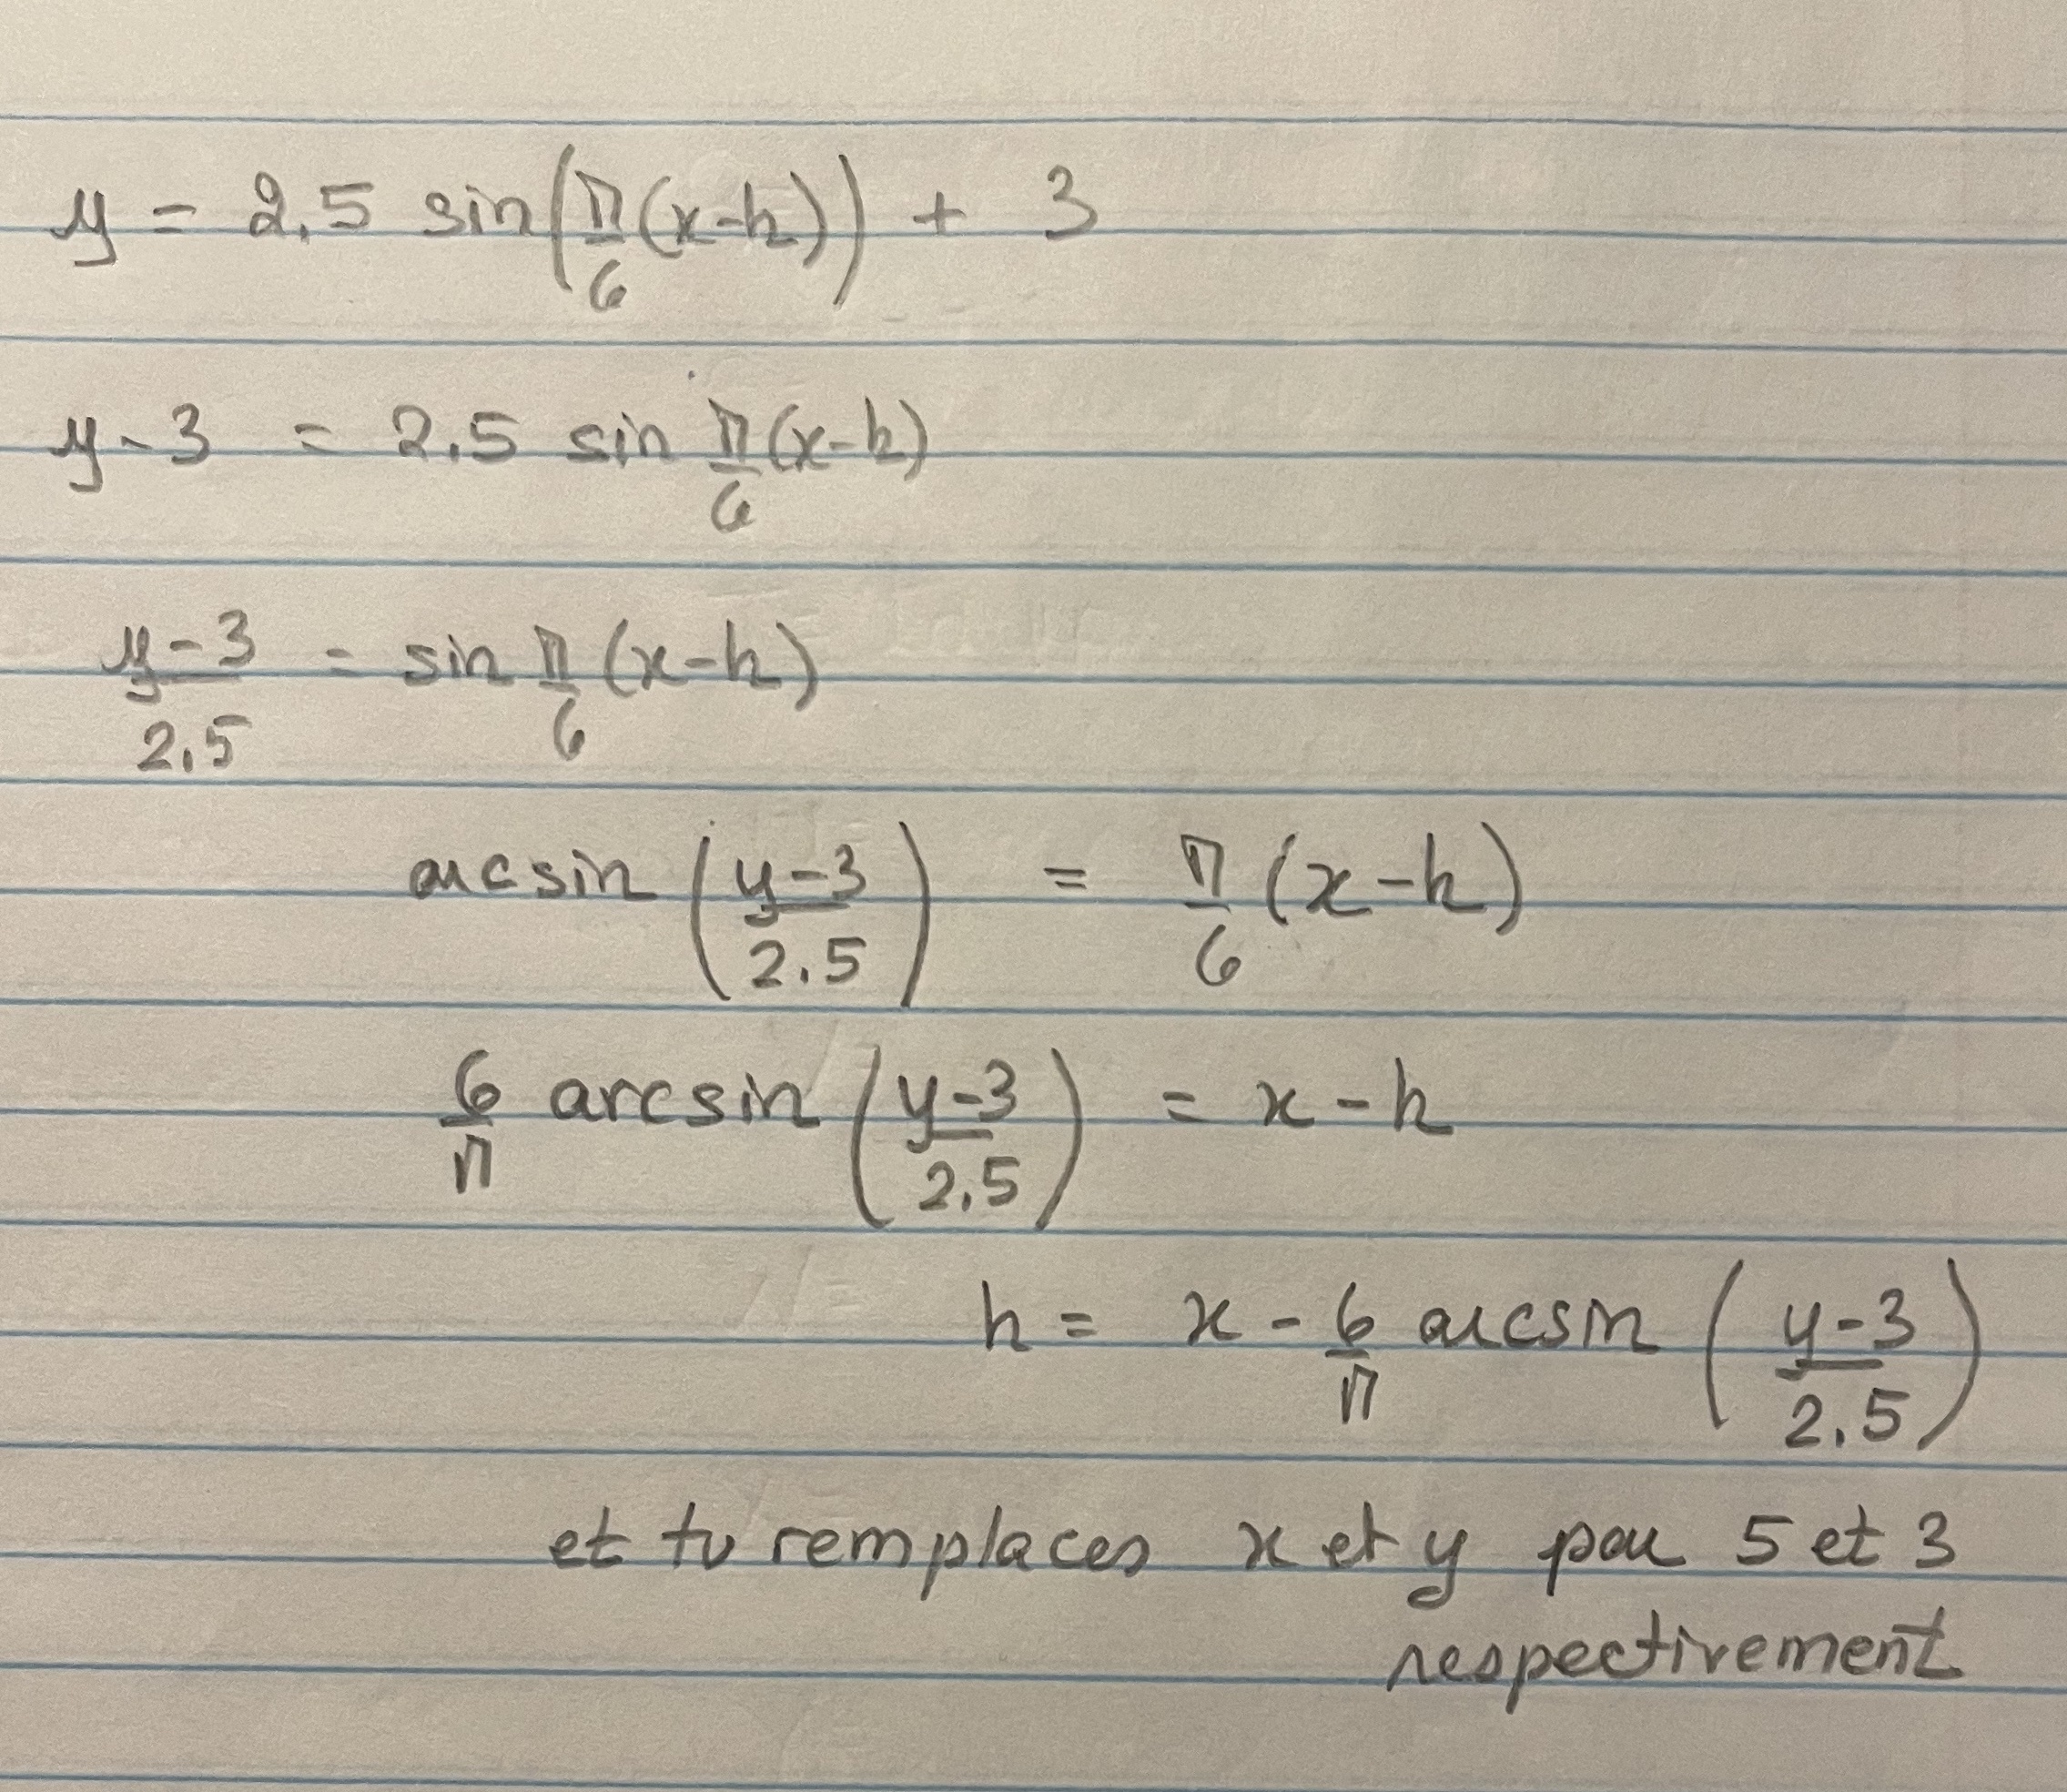 y = 2.5 sin(π/6 (x-h)) + 3
y-3 = 2.5 sin π/6 (x-h)
y-3/2.5 = sin π/6 (x-h)
arcsin (y-3/2.5) = π/6 (x-h)
6/π arcsin (y-3/2.5) = x-h
h = x - 6/π arcsin (y-3/2.5)
et tu remplaces x et y par 5 et 3
respectivement